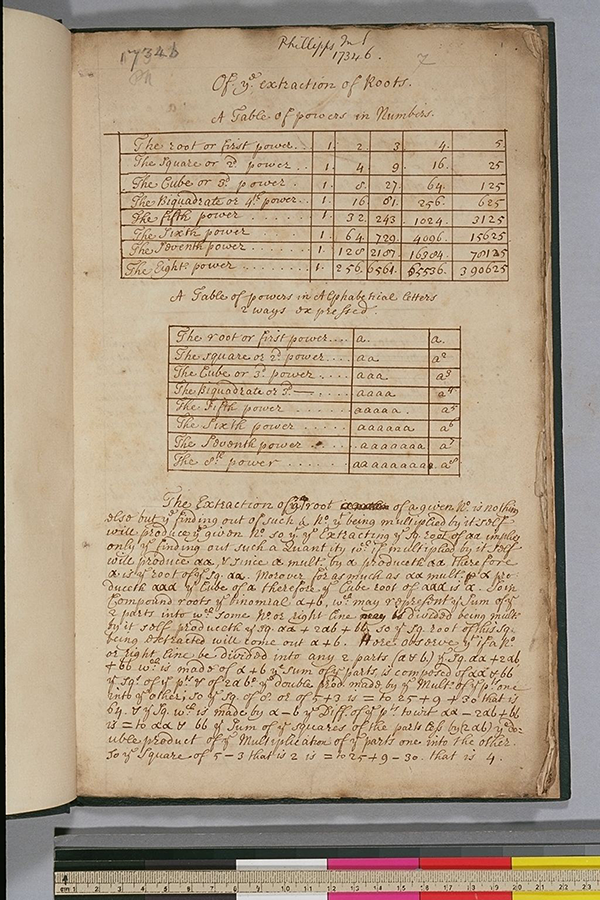 17346
Phillipps MS
17346.
2
Of yᵉ extraction of Roots.
A Table of powers in Numbers.
The root or first power.. 1. 2. 3. 4. 5.
The Square or 2ᵈ power .. 1. 4. 9. 16. 25
The Cube or 3ᵈ power . 1. 8. 27. 64. 125
The Biquadrate or 4ᵗʰ power.. 1. 16. 81. 256. 625
The fifth power ...... 1. 32. 243. 1024. 3125
The Sixth power ...... 1. 64. 729. 4096. 15625
The Seventh power ..... 1. 128 2187. 16384. 78125
The Eight power ...... 1. 256. 6561. 65536. 390625
A Table of powers in Alphabetical letters
2 ways expressed.
The root or first power.... a. a.
The square or 2ᵈ power.... aa a²
The Cube or 3ᵈ power .... aaa a³
The Biquadrate or aaaa a⁴
The Fifth power ...... aaaaa . a⁵
The Sixth power ..... aaaaaa a⁶
The Seventh power ... aaaaaaa a⁷
The 8ᵗʰ power ...... aaaaaaaa. a⁸
The Extraction of yᵉ root of a given Nᵒ is nothing
else but yᵉ finding out of such a Nᵒ yᵗ being multiplied by it self
will produce yᵉ given Nᵒ so yᵉ Extracting yᵉ Sq. root of aa implies
only yᵉ finding out such a Quantity wᶜ if multiplied by it self
will produce aa, & since a mult. by a produceth aa therefore
a is yᵉ root of yᵉ Sq. aa. Morover for as much as aa mult: by a pro-
duceth aaa yᵉ Cube of a therefore yᵉ Cube root of aaa is a. So in
Compound roots yᵉ binomial a+b, wᶜ may represent yᵉ Sum of yᵉ
2 parts into wᶜ some Nᵒ or right line may be divided being mult:
by it self produceth yᵉ Sq. aa + 2ab + bb, so yᵉ Sq. root of this Sq.
being extracted will come out a + b. Here observe yᵗ if a Nᵒ
or right line be divided into any 2 parts (a & b) yᵉ Sq. aa + 2ab
+ bb wᶜʰ is made of a + b yᵉ sum of yᵉ parts is composed of aa & bb
yᵉ Sqˢ of yᵉ pᵗˢ & of 2ab yᵉ double prod. made by yᵉ Mult: of yᵉ p. one
into yᵉ other; so yᵉ Sq. of 8. or of 5+3 is = to 25 + 9 + 30 that is
64. & yᵉ Sq. wᶜ is made by a - b yᵉ Diff. of yᵉ pᵗˢ to wit aa - 2ab + bb
is = to aa & bb yᵉ Sum of yᵉ squares of the parts less by (2ab) yᵉ do-
uble product of yᵉ Multiplication of yᵉ parts one into the other.
So yᵉ Square of 5 - 3 that is 2 is = to 25 + 9 - 30. that is 4.
cm 1 2 3 4 5 6 7 8 9 10 11 12 13 14 15 16 17 18 19